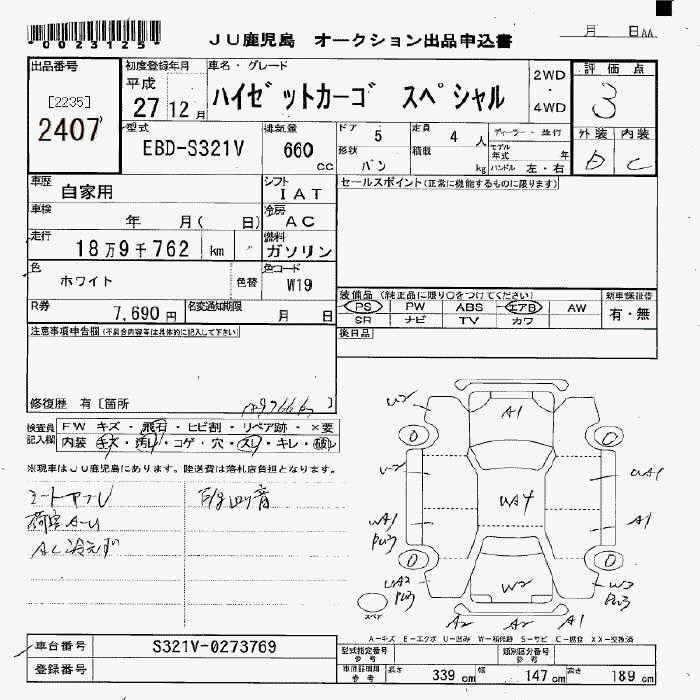 -0023125-
月 日AA
ＪＵ鹿児島 オークション出品申込書
出品番号
[2235]
2407
初度登録年月
平成
27 12 月
車名・グレード
ハイゼットカーゴ スペシャル
2WD
・
4WD
評価点
3
外装 内装
b c
型式
EBD-S321V
排気量
660
cc
ドア
5
形状
バン
定員
4 人
積載
kg
ディーラー・並行
モデル年式 年
ハンドル 左・右
車歴
自家用
シフト
IAT
セールスポイント(正常に機能するものに限ります)
車検
年 月( 日)
冷房
AC
走行
18 万 9 千 762 km
燃料
ガソリン
色
ホワイト
色替
色コード
W19
R券
7,690 円
名変通知期限
月 日
装備品 (純正品に限り○をつけてください)
PS PW ABS エアB AW
SR ナビ TV カワ
新車保証書
有・無
後日品
注意事項申告欄(不具合内容等は具体的に記入して下さい)
修復歴 有 [箇所 ]
検査員記入欄
FW キズ・飛石・ヒビ割・リペア跡・×要
内装 キズ・汚レ・コゲ・穴・スレ・キレ・破レ
※現車はＪＵ鹿児島にあります。陸送費は落札店負担となります。
シートアブレ
荷室A-U
AC冷えず
A1
U2
UA1
UA4
A1
W2
UA2
W3
A2 A2 A1
スペア
A－キズ E－エクボ U－凹み W－補修跡 S－サビ C－腐食 XX－交換済
車台番号
S321V-0273769
登録番号
型式指定番号
参考
類別区分番号
参考
車両証明用
参考
長さ 339 cm 幅 147 cm 高さ 189 cm